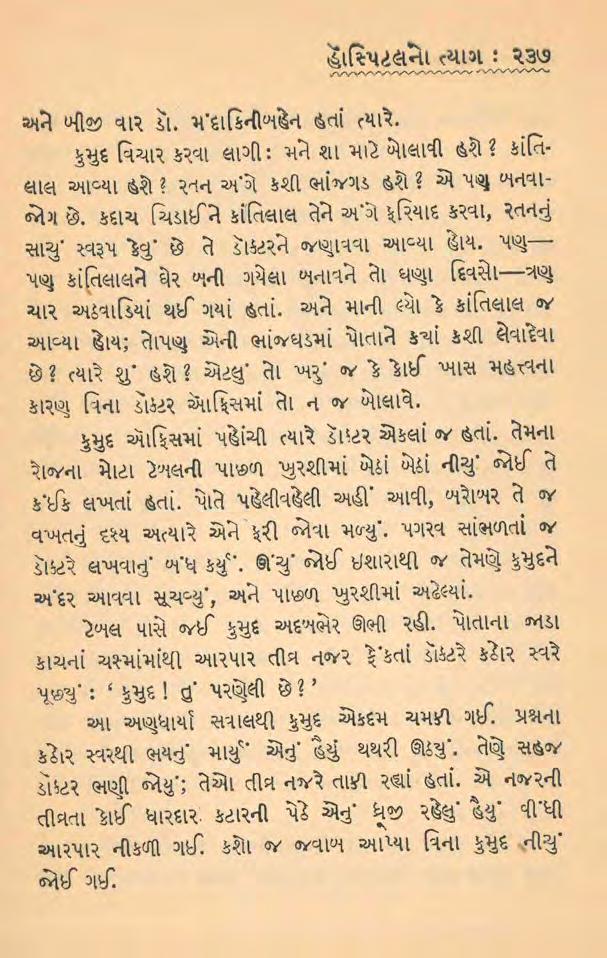 હૉસ્પિટલનો ત્યાગ : ૨૩૭
અને બીજી વાર ડૉ. મંદાકિનીબહેન હતાં ત્યારે.
કુમુદ વિચાર કરવા લાગી : મને શા માટે બોલાવી હશે ? કાંતિ-
લાલ આવ્યા હશે ? રતન અંગે કશી ભાંજગડ હશે ? એ પણ બનવા-
જોગ છે. કદાચ ચિડાઈને કાંતિલાલ તેને અંગે ફરિયાદ કરવા, રતનનું
સાચું સ્વરૂપ કેવું છે તે ડૉક્ટરને જણાવવા આવ્યા હોય. પણ—
પણ કાંતિલાલને ઘેર બની ગયેલા બનાવને તો ઘણા દિવસો—ત્રણ
ચાર અઠવાડિયાં થઈ ગયાં હતાં. અને માની લ્યો કે કાંતિલાલ જ
આવ્યા હોય; તોપણ એની ભાંજઘડમાં પોતાને ક્યાં કશી લેવાદેવા
છે ? ત્યારે શું હશે ? એટલું તો ખરું જ કે કોઈ ખાસ મહત્ત્વના
કારણ વિના ડૉક્ટર ઑફિસમાં તો ન જ બોલાવે.
કુમુદ ઑફિસમાં પહોંચી ત્યારે ડૉક્ટર એકલાં જ હતાં. તેમના
રોજના મોટા ટેબલની પાછળ ખુરશીમાં બેઠાં બેઠાં નીચું જોઈ તે
કંઈક લખતાં હતાં. પોતે પહેલીવહેલી અહીં આવી, બરોબર તે જ
વખતનું દૃશ્ય અત્યારે એને ફરી જોવા મળ્યું. પગરવ સાંભળતાં જ
ડૉક્ટરે લખવાનું બંધ કર્યું. ઊંચું જોઈ ઇશારાથી જ તેમણે કુમુદને
અંદર આવવા સૂચવ્યું, અને પાછળ ખુરશીમાં અઢેલ્યાં.
ટેબલ પાસે જઈ કુમુદ અદબભેર ઊભી રહી. પોતાના જાડા
કાચનાં ચશ્માંમાંથી આરપાર તીવ્ર નજર ફેંકતાં ડૉક્ટરે કઠોર સ્વરે
પૂછ્યું : ‘ કુમુદ ! તું પરણેલી છે ?’
આ અણધાર્યા સવાલથી કુમુદ એકદમ ચમકી ગઈ. પ્રશ્નના
કઠોર સ્વરથી ભયનું માર્યું એનું હૈયું થથરી ઊઠ્યું. તેણે સહજ
ડૉક્ટર ભણી જોયું; તેઓ તીવ્ર નજરે તાકી રહ્યાં હતાં. એ નજરની
તીવ્રતા કોઈ ધારદાર કટારની પેઠે એનું ધ્રૂજી રહેલું હૈયું વીંધી
આરપાર નીકળી ગઈ. કશો જ જવાબ આપ્યા વિના કુમુદ નીચું
જોઈ ગઈ.